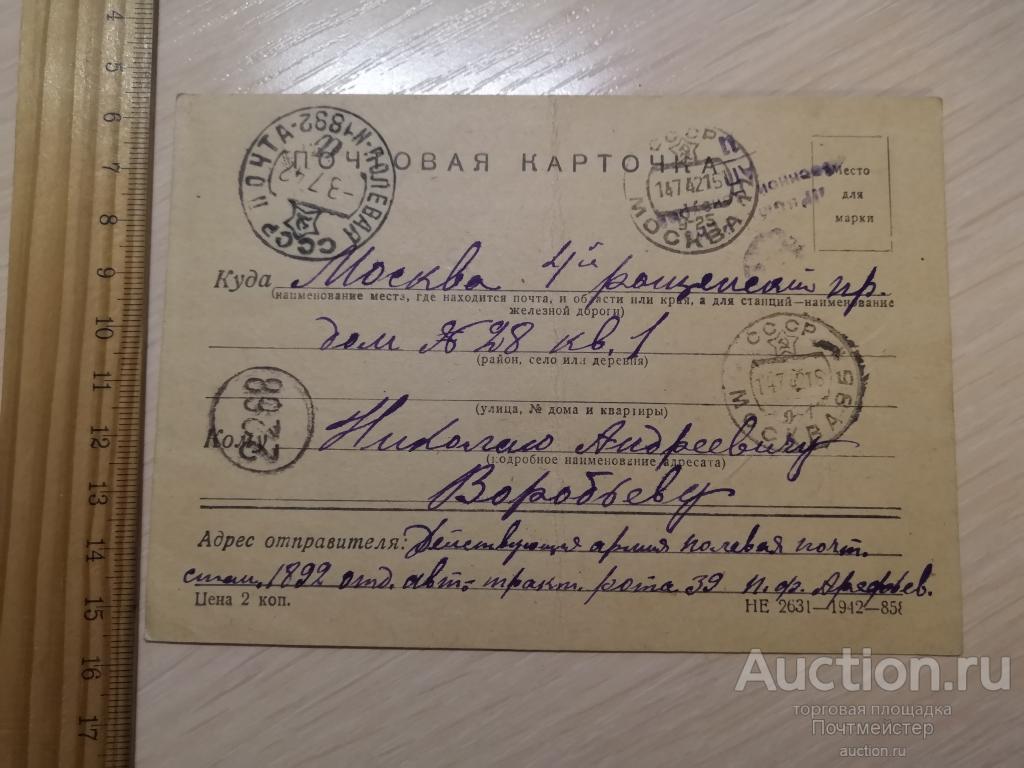 ПОЧТОВАЯ КАРТОЧКА
СССР ПОЛЕВАЯ ПОЧТА-N-1892
-3 7 42
СССР
14 7 42 15
9-25
МОСКВА
Место
для
марки
Куда Москва 4й рощенский пр.
(наименование места, где находится почта, и области или края, а для станций—наименование
железной дороги)
дом № 28 кв. 1
(район, село или деревня)
СССР
МОСКВА 85
(улица, № дома и квартиры)
Кому Николаю Андреевичу
(подробное наименование адресата)
Воробьеву
Адрес отправителя: Действующая армия полевая почт.
стан. 1892 отд. авт.-тракт. рота 39 п. ф. Арефьев.
Цена 2 коп.
НЕ 2631—1942—858
4
5
6
7
8
9
10
11
12
13
14
15
16
17
Auction.ru
торговая площадка
Почтмейстер
auction.ru